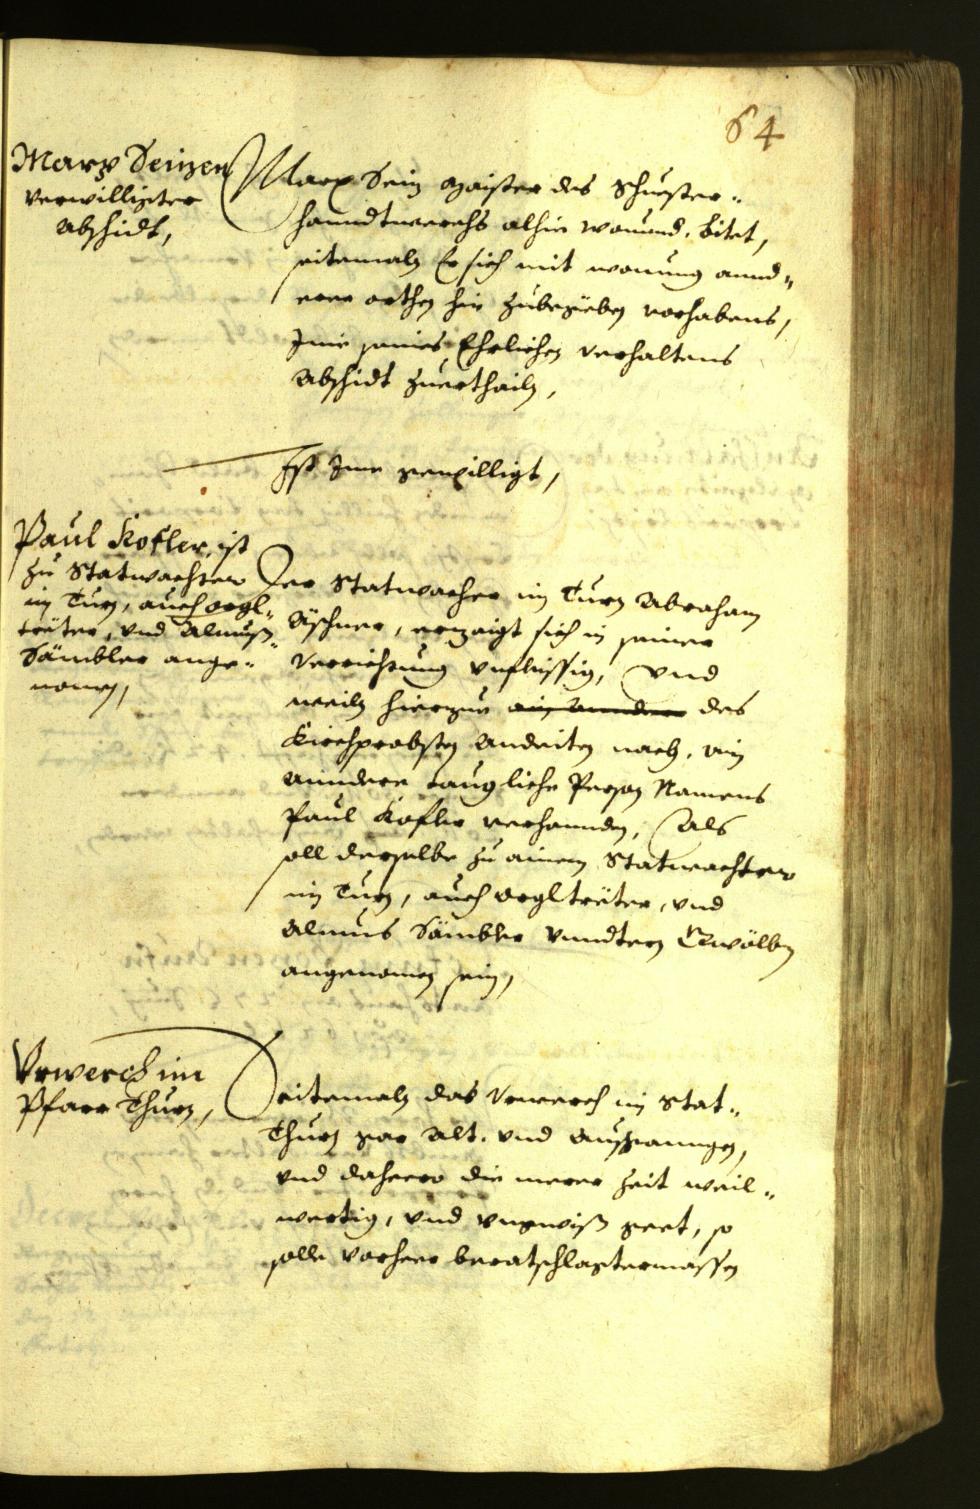 64
Marx Seizen
verwilligter
Abschidt,
Marx Seiz Maister des Schuester-
hanndtwerchs alhie wonend, bitet,
seitemaln Er sich mit wonung annd-
rer orthen hin zubegeben vorhabens,
Ime seines Ehrlichen verhaltens
Abschidt zuerthailn,
Ist Ime gewilligt,
Paul Kofler, ist
zu Statwachter
im Turn, auch orgl-
treter, und Almuß-
Sambler ange-
nomen,
Der Statwachter im Turn Abraham
Äschner, erzaigt sich in seiner
Verrichtung unfleissig, Und
weiln hierzue ain annder des
Kirchprobsten Andeiten nach, ain
anndere taugliche Person Namens
Paul Kofler verhannden, Als
soll derselbe zu ainem Statwachter
im Turn, auch orgltreter, und
Almus Sambler unndtern Gwölben
angenomen sein,
Urwerch im
Pfarr Thurn,
Seitemaln das Urwerch im Stat-
Thurn gar Alt, und
und dahero die merer Zeit weil-
wertig, und ungwiß geet, so
solle vorheer beratschlagtermassen